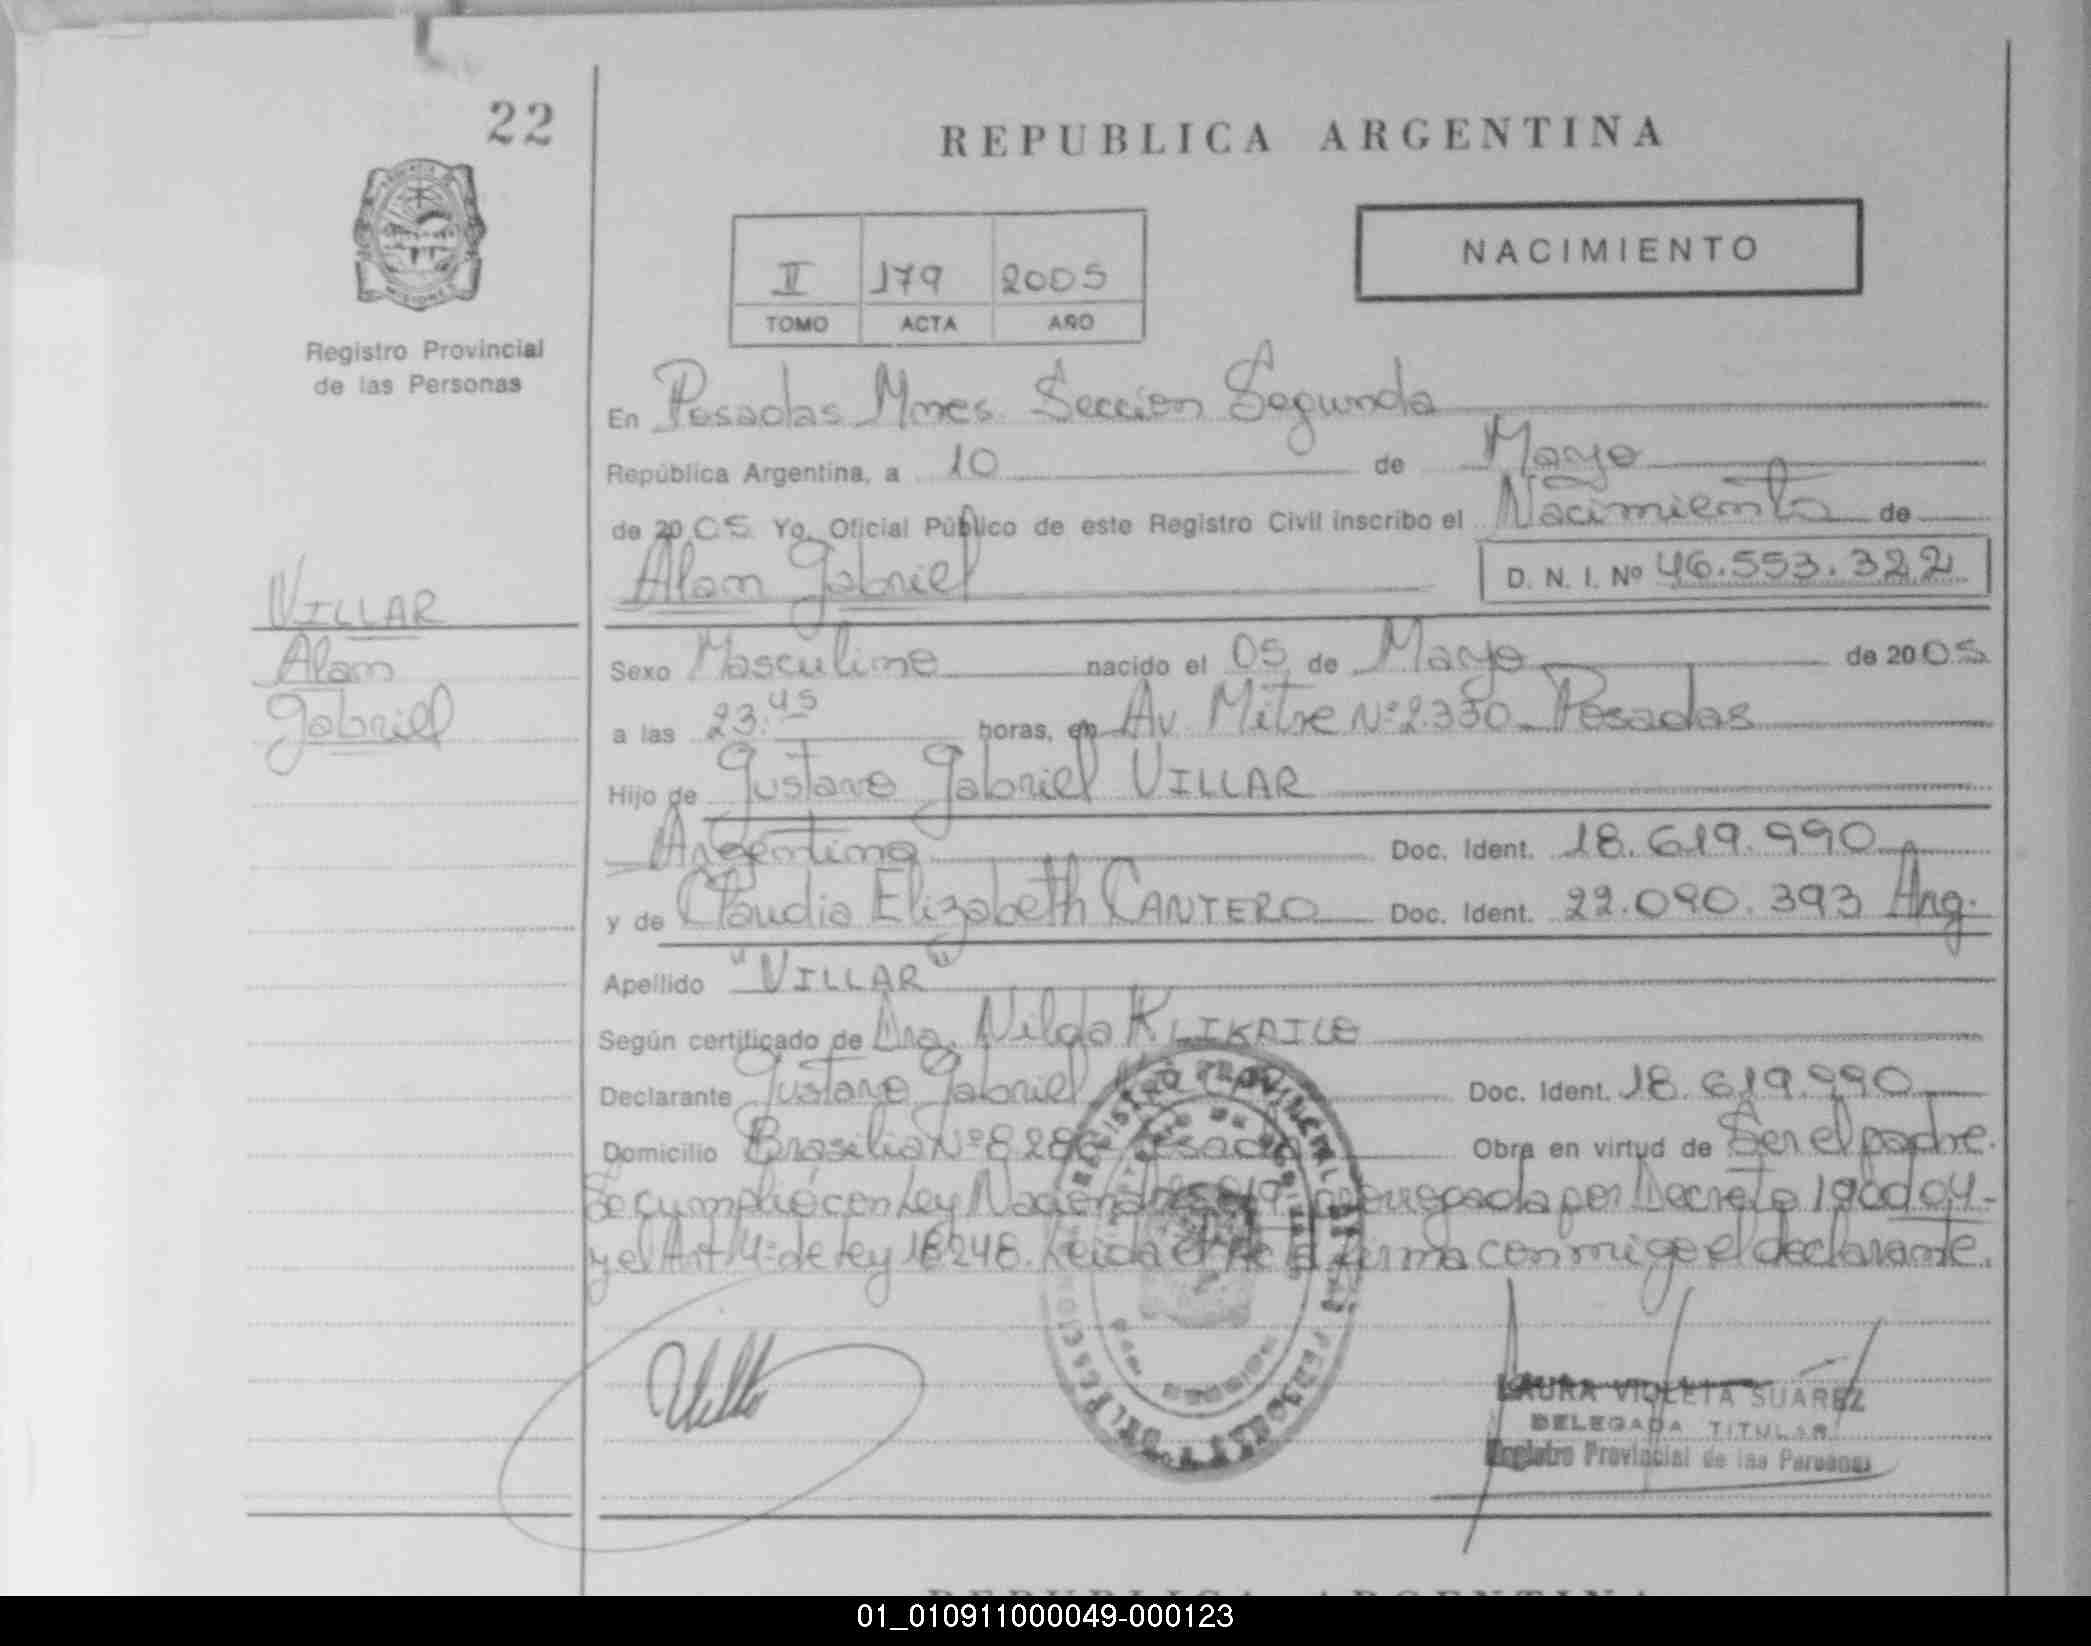 22
REPUBLICA ARGENTINA
NACIMIENTO
II 179 2005
TOMO ACTA AÑO
Registro Provincial
de las Personas
En Posadas Mnes. Seccion Segunda
República Argentina, a 10 de Mayo
de 2005 Yo, Oficial Público de este Registro Civil inscribo el Nacimiento de
Alan Gabriel D. N. I. Nº 46.553.322
VILLAR
Alan
Gabriel
Sexo Masculino nacido el 05 de Mayo de 2005
a las 23.45 horas, en Av. Mitre Nº 2.330 Posadas
Hijo de Gustavo Gabriel VILLAR
Argentino Doc. Ident. 18.619.990
y de Claudia Elizabeth CANTERO Doc. Ident. 22.090.393 Arg.
Apellido "VILLAR"
Según certificado de Dra. Nilda
Declarante Gustavo Gabriel Doc. Ident. 18.619.990
Domicilio Brasilia Nº Posadas Obra en virtud de Ser el padre.
Se cumplió con Ley Nacional por Decreto
y el Art. 4º de Ley 18248. Leida el firma conmigo el declarante.
REGISTRO PROVINCIAL DE LAS PERSONAS
MISIONES
LAURA VIOLETA SUAREZ
DELEGADA TITULAR
Registro Provincial de las Personas
REPUBLICA ARGENTINA
01_010911000049-000123